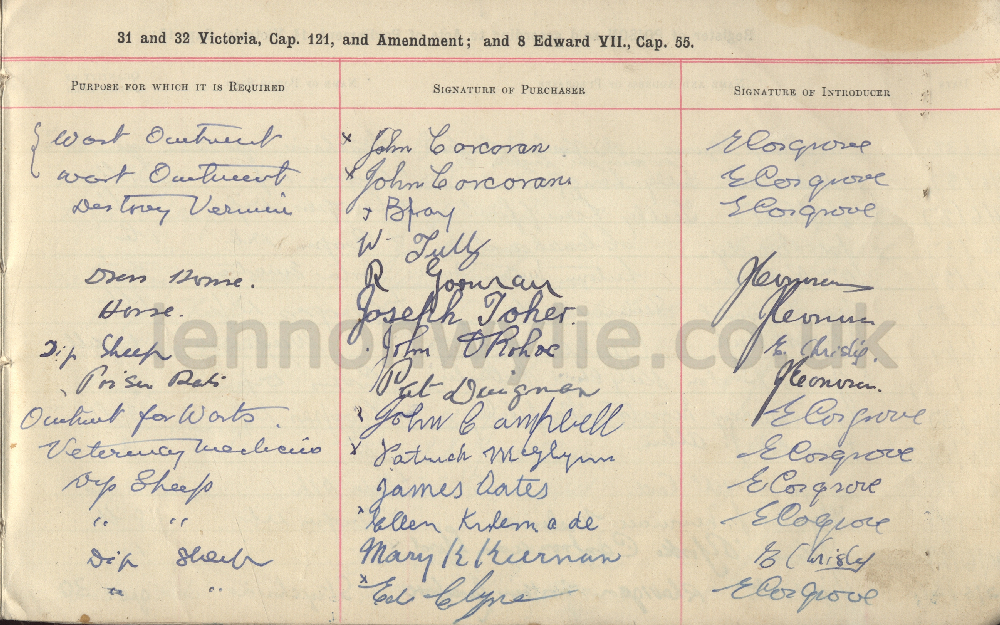 31 and 32 Victoria, Cap. 121, and Amendment; and 8 Edward VII., Cap. 55.
Purpose for which it is Required Signature of Purchaser Signature of Introducer
Wort Ointment x John Corcoran E Cosgrove
Wort Ointment x John Corcoran E Cosgrove
Destroy Vermin x B Fay E Cosgrove
W Tully
Dress Horse. R Gorman
Horse. Joseph Toher.
Dip Sheep John O Rohoe E. Christy.
Poison Rats Pat Duignan
Ointment for Worts. John Campbell E Cosgrove
Veterinary medicine x Patrick McGlynn E Cosgrove
Dip Sheep James Oates E Cosgrove
" " Ellen E Cosgrove
Dip Sheep Mary K Kiernan E Christy
" " x Ed Clyne E Cosgrove
lennonwylie.co.uk